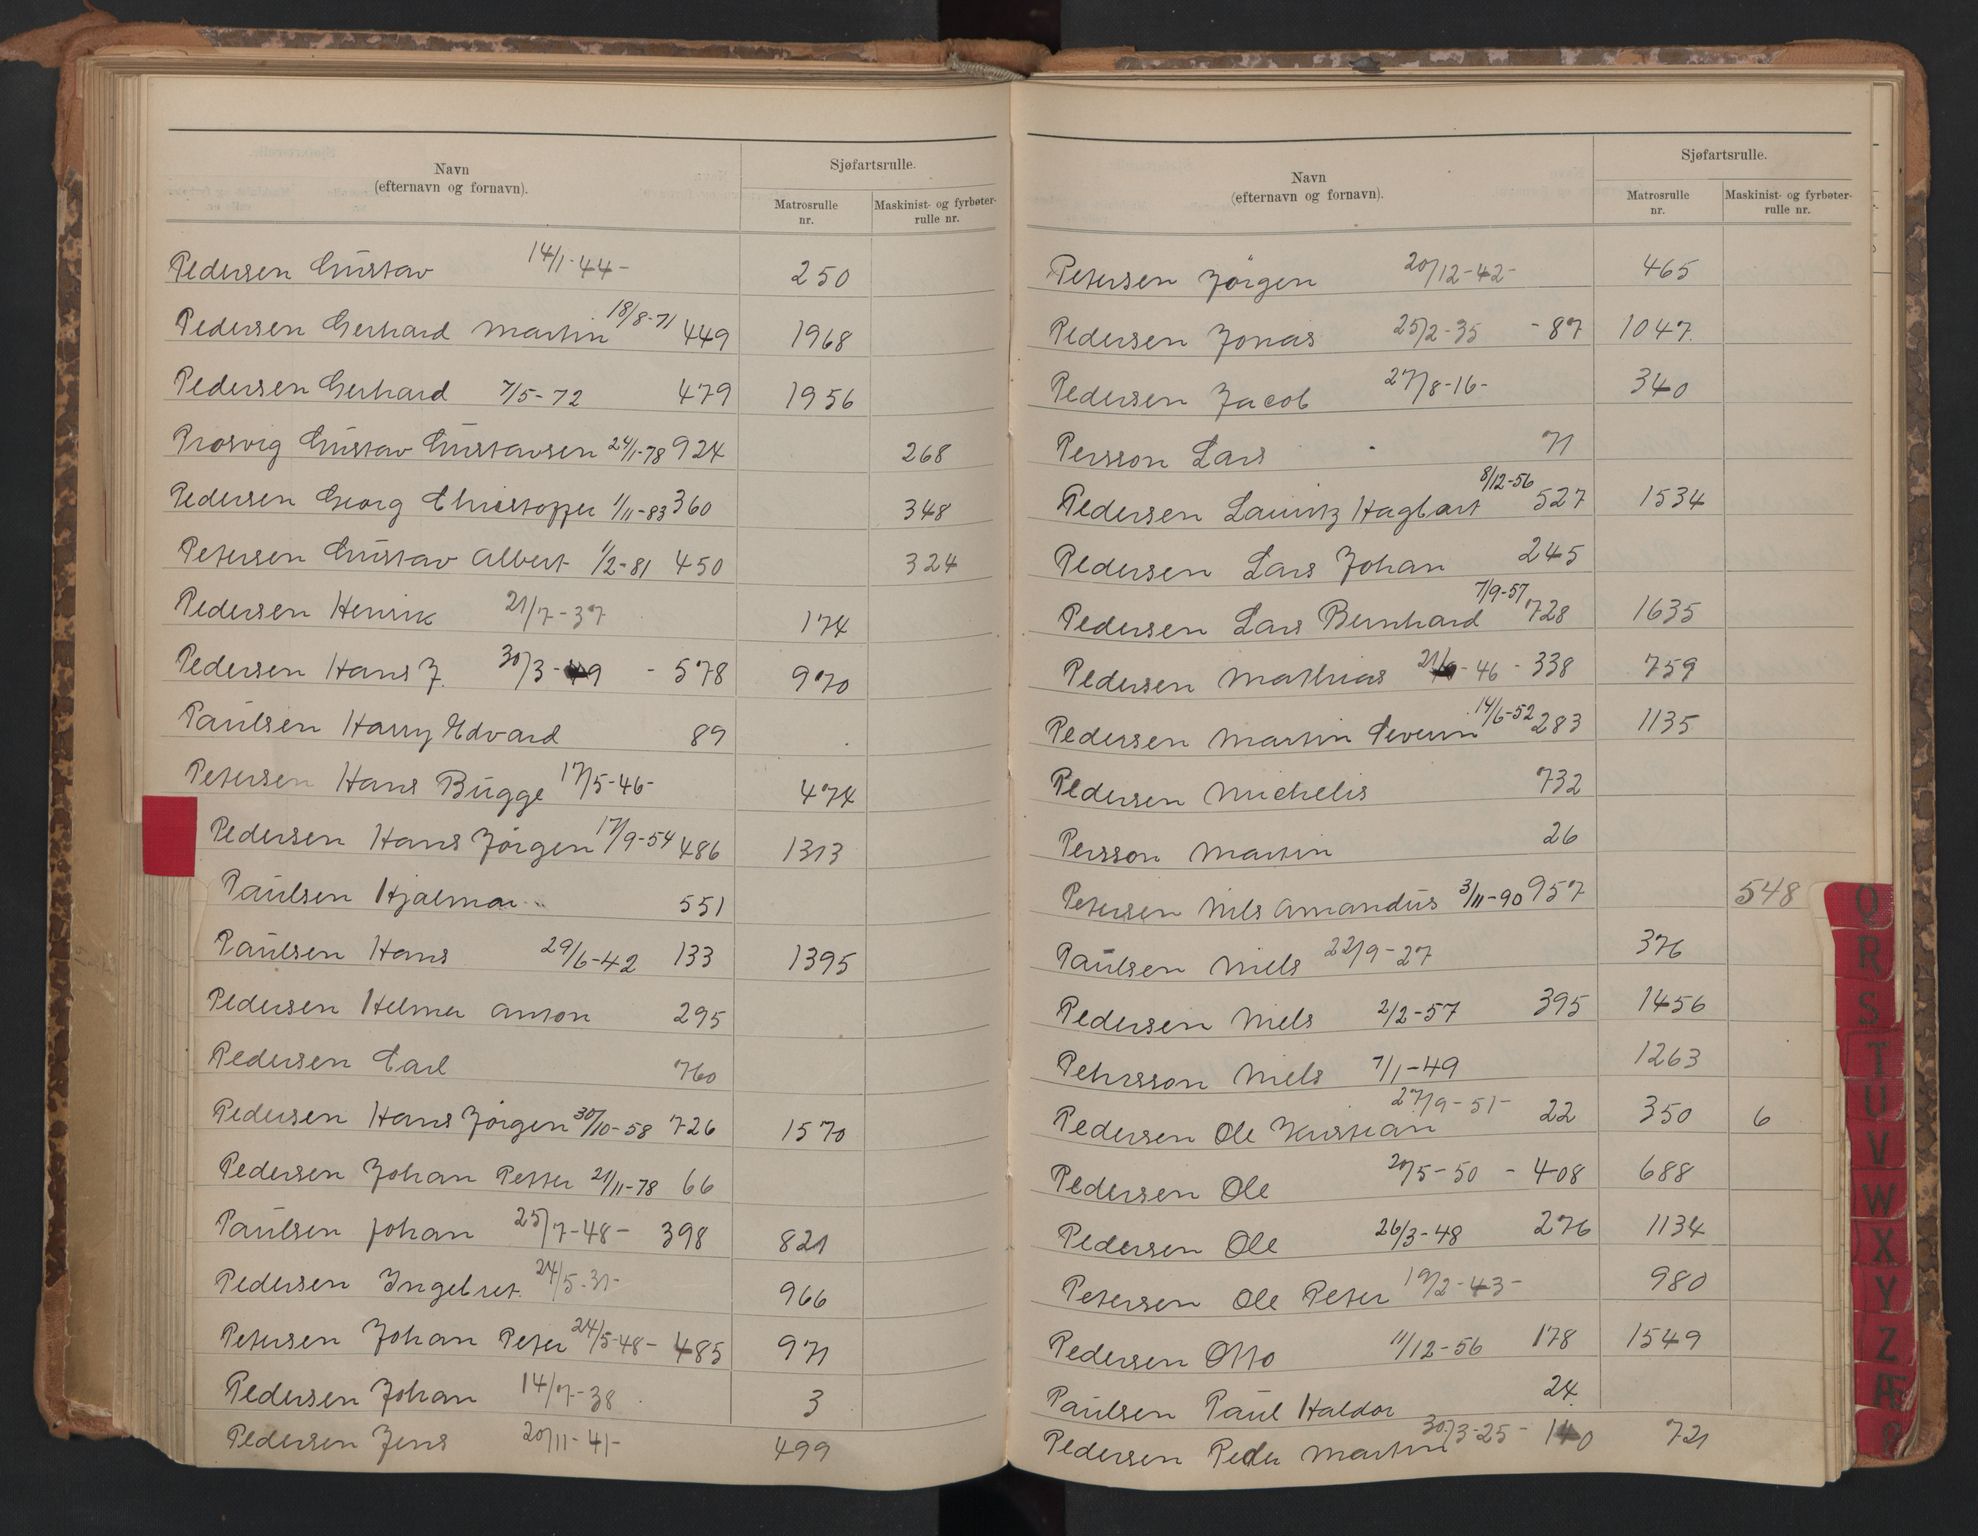 Navn
(efternavn og fornavn).
Sjøfartsrulle.
Matrosrulle
nr.
Maskinist- og fyrbøter-
rulle nr.
Pedersen Gustav 14/1-44- 250
Pedersen Gerhard Martin 18/8-71 449 1968
Pedersen Gerhard 7/5-72 479 1956
Prosvig Gustav Gustavsen 24/1-78 924 268
Pedersen Georg Christoffer 1/11-83 360 348
Petersen Gustav Albert 1/2-81 450 324
Pedersen Henrik 21/7-37 174
Pedersen Hans J. 30/3-49 - 578 970
Paulsen Harry Edvard 89
Petersen Hans Bugge 17/5-46- 474
Pedersen Hans Jørgen 17/9-54 486 1313
Paulsen Hjalmar 551
Paulsen Hans 29/6-42 133 1395
Pedersen Helmer Anton 295
Pedersen Carl 760
Pedersen Hans Jørgen 30/10-58 726 1570
Pedersen Johan Petter 21/11-78 66
Paulsen Johan 25/7-48- 398 821
Pedersen Ingebret. 24/5-31- 966
Petersen Johan Peter 24/5-48- 485 971
Pedersen Johan 14/7-38 3
Pedersen Jens 20/11-41- 499
Navn
(efternavn og fornavn).
Sjøfartsrulle.
Matrosrulle
nr.
Maskinist- og fyrbøter-
rulle nr.
Petersen Jörgen 20/12-42- 465
Pedersen Jonas 25/2-35 -87 1047.
Pedersen Jacob 27/8-16- 340
Persson Lars 71
Pedersen Lauritz Hagbart 8/12-56 527 1534
Pedersen Lars Johan 245
Pedersen Lars Bernhard 7/9-57 728 1635
Pedersen Mathias -46 - 338 759
Pedersen Martin Severin 14/6-52 283 1135
Pedersen Michelis 732
Persson Martin 26
Petersen Nils Amandus 3/11-90 957 548
Paulsen Niels 22/9-27 376
Pedersen Niels 2/2-57 395 1456
Pehrsson Niels 7/1-49 1263
Pedersen Ole Kristian 27/9-51- 22 350 6
Pedersen Ole 20/5-50 - 408 688
Pedersen Ole 26/3-48 276 1134
Petersen Ole Peter 19/2-43- 980
Pedersen Otto 11/12-56 178 1549
Paulsen Paul Haldor 24.
Pedersen Peder Martin 30/3-25- 140 721
Q
R
S
T
U
V
W
X
Y
Z
Æ
Ø